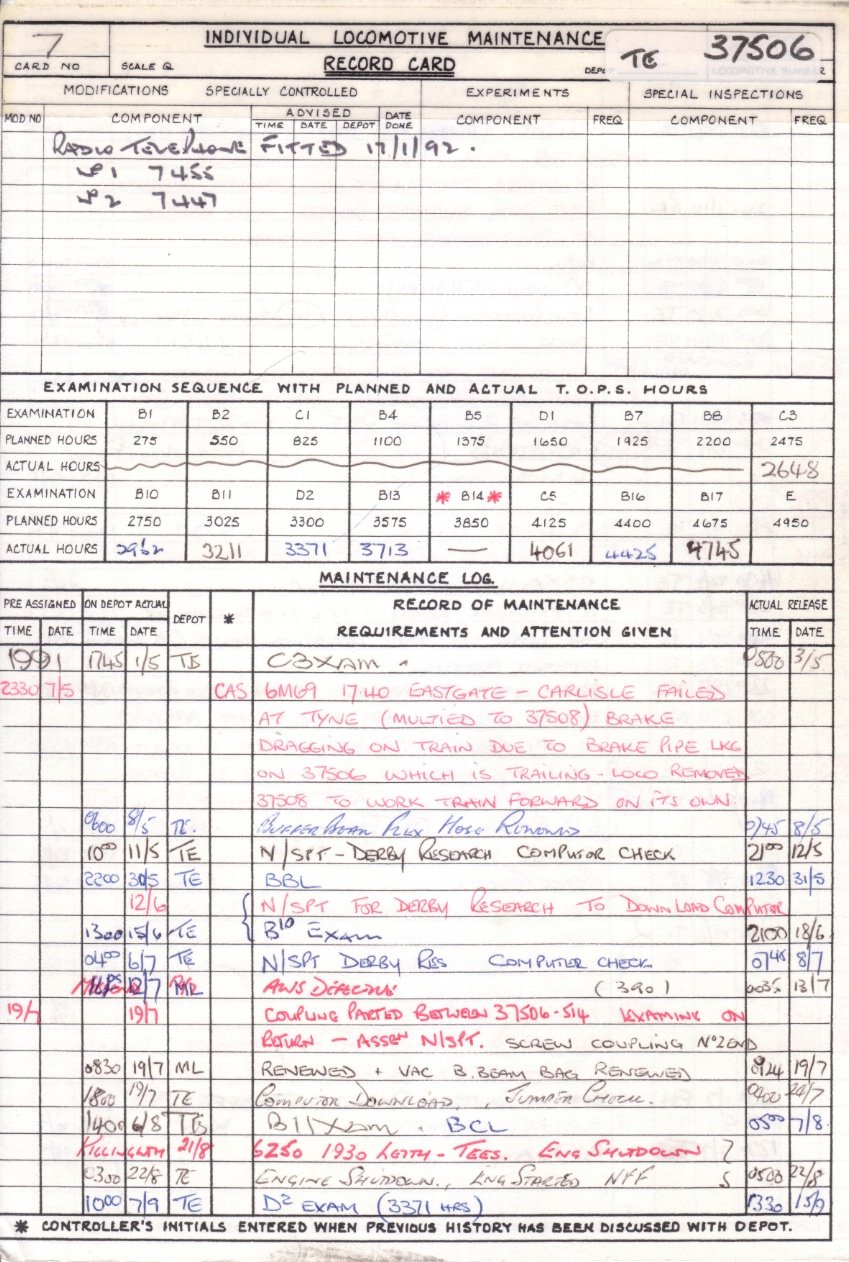 7 INDIVIDUAL LOCOMOTIVE MAINTENANCE TE 37506
CARD NO SCALE Q RECORD CARD DEPOT LOCOMOTIVE NUMBER
MODIFICATIONS SPECIALLY CONTROLLED EXPERIMENTS SPECIAL INSPECTIONS
MOD NO COMPONENT ADVISED DATE DONE COMPONENT FREQ COMPONENT FREQ
TIME DATE DEPOT
RADIO TELEPHONE FITTED 17/1/92.
Nº 1 7455
Nº 2 7447
EXAMINATION SEQUENCE WITH PLANNED AND ACTUAL T.O.P.S. HOURS
EXAMINATION B1 B2 C1 B4 B5 D1 B7 B8 C3
PLANNED HOURS 275 550 825 1100 1375 1650 1925 2200 2475
ACTUAL HOURS 2648
EXAMINATION B10 B11 D2 B13 * B14 * C5 B16 B17 E
PLANNED HOURS 2750 3025 3300 3575 3850 4125 4400 4675 4950
ACTUAL HOURS 2962 3211 3371 3713 — 4061 4425 4745
MAINTENANCE LOG.
PRE ASSIGNED ON DEPOT ACTUAL DEPOT * RECORD OF MAINTENANCE ACTUAL RELEASE
TIME DATE TIME DATE REQUIREMENTS AND ATTENTION GIVEN TIME DATE
1991 1745 1/5 C3 XAM. 0500 3/5
2330 7/5 CAS 6M69 17.40 EASTGATE - CARLISLE FAILED
AT TYNE (MULTIED TO 37508) BRAKE
DRAGGING ON TRAIN DUE TO BRAKE PIPE LKG
ON 37506 WHICH IS TRAILING - LOCO REMOVED
37508 TO WORK TRAIN FORWARD ON ITS OWN
0600 8/5 TE. BUFFER BEAM FLEX HOSE RENEWED 0745 8/5
10⁰⁰ 11/5 TE N/SPT - DERBY RESEARCH COMPUTOR CHECK 21⁰⁰ 12/5
2200 30/5 TE BBL 1230 31/5
12/6 N/SPT FOR DERBY RESEARCH TO DOWNLOAD COMPUTOR
1300 15/6 TE B10 EXAM 2100 18/6
04⁰⁰ 6/7 TE N/SPT DERBY RES COMPUTER CHECK 07⁴⁵ 8/7
12/7 ML AWS DEFECTIVE (390) 0035 13/7
19/7 19/7 COUPLING PARTED BETWEEN 37506-514 EXAMINE ON
RETURN - ASSGN N/SPT. SCREW COUPLING Nº2 END
0830 19/7 ML RENEWED + VAC B.BEAM BAG RENEWED 0924 19/7
1800 19/7 TE COMPUTOR DOWNLOAD, JUMPER CHECK. 0400 24/7
1400 6/8 B11 XAM. BCL 05⁰⁰ 7/8
KILLINGWTH 21/8 6Z50 1930 LEITH - TEES. ENG SHUTDOWN
0300 22/8 TE ENGINE SHUTDOWN, ENG STARTED NFF 0503 22/8
10⁰⁰ 7/9 TE D2 EXAM (3371 HRS) 1330 15/9
* CONTROLLER'S INITIALS ENTERED WHEN PREVIOUS HISTORY HAS BEEN DISCUSSED WITH DEPOT.